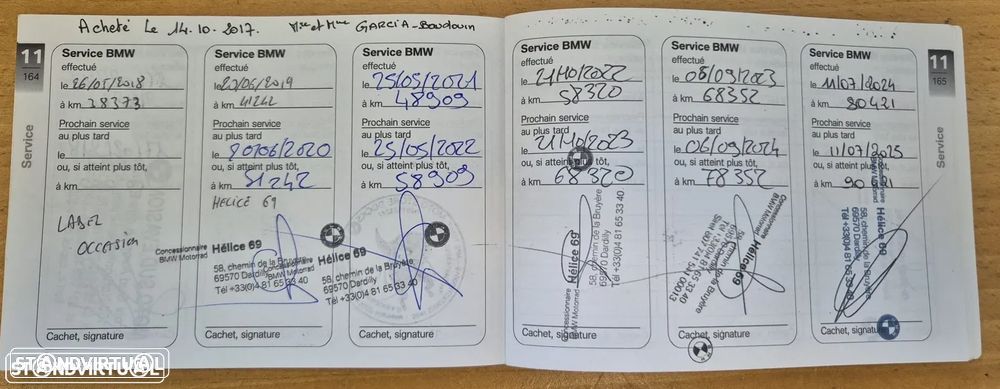 Acheté Le 14.10.2017. Mr et Mme GARCIA-Baudouin
11
164
Service
Service BMW
effectué
le 26/05/2018
à km 38373
Prochain service
au plus tard
le
ou, si atteint plus tôt,
à km
LABEL
OCCASION
Cachet, signature
Service BMW
effectué
le 20/06/2019
à km 41242
Prochain service
au plus tard
le 20/06/2020
ou, si atteint plus tôt,
à km 51242
HELICE 69
Concessionnaire Hélice 69
BMW Motorrad
58, chemin de la Bruyère
69570 Dardilly
Tél +33(0)4 81 65 33 40
Cachet, signature
Service BMW
effectué
le 25/05/2021
à km 48909
Prochain service
au plus tard
le 25/05/2022
ou, si atteint plus tôt,
à km 58909
Concessionnaire Hélice 69
BMW Motorrad
58, chemin de la Bruyère
69570 Dardilly
Tél +33(0)4 81 65 33 40
Cachet, signature
Service BMW
effectué
le 21/10/2022
à km 58320
Prochain service
au plus tard
le 21/10/2023
ou, si atteint plus tôt,
à km 68320
Concessionnaire Hélice 69
BMW Motorrad
58, chemin de la Bruyère
69570 Dardilly
Tél +33(0)4 81 65 33 40
Cachet, signature
Service BMW
effectué
le 06/09/2023
à km 68352
Prochain service
au plus tard
le 06/09/2024
ou, si atteint plus tôt,
à km 78352
Concessionnaire Hélice 69
BMW Motorrad
58, chemin de la Bruyère
Cachet, signature
Service BMW
effectué
le 11/07/2024
à km 80421
Prochain service
au plus tard
le 11/07/2025
ou, si atteint plus tôt,
à km 90421
Concessionnaire Hélice 69
BMW Motorrad
58, chemin de la Bruyère
69570 Dardilly
Tél +33(0)4 81 65 33 40
Cachet, signature
11
165
Service
STANDVIRTUAL
STANDVIRTUAL